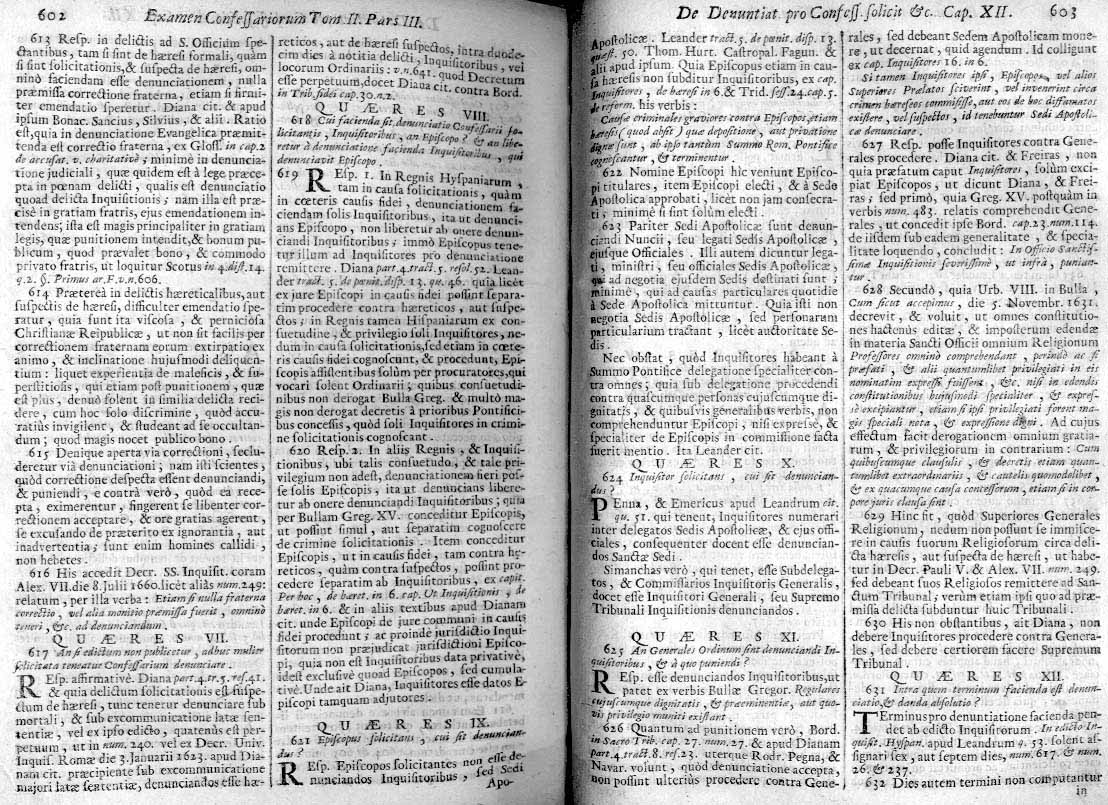 602 Examen Confessariorum Tom II. Pars III.
613 Resp. in delictis ad S. Officium spe-
ctantibus, tam si sint de hæresi formali, quàm
si sint solicitationis, & suspecta de hæresi, om-
ninò faciendam esse denunciationem, nulla
præmissa correctione fraterna, etiam si firmi-
ter emendatio speretur. Diana cit. & apud
ipsum Bonac. Sancius, Silvius, & alii. Ratio
est, quia in denunciatione Evangelica præmit-
tenda est correctio fraterna, ex Gloss. in cap.2
de accusat. v. charitativè; minimè in denuncia-
tione judiciali, quæ quidem est à lege præce-
pta in pœnam delicti, qualis est denunciatio
quoad delicta Inquisitionis; nam illa est præ-
cisè in gratiam fratris, ejus emendationem in-
tendens; ista est magis principaliter in gratiam
legis, quæ punitionem intendit, & bonum pu-
blicum, quod prævalet bono, & commodo
privato fratris, ut loquitur Scotus in 4. dist. 14.
q.2. §. Primus ar. F. v. n. 606.
614 Prætereà in delictis hæreticalibus, aut
suspectis de hæresi, difficulter emendatio spe-
ratur, quia sunt ita viscosa, & perniciosa
Christianæ Reipublicæ, ut non sit facilis per
correctionem fraternam eorum extirpatio ex
animo, & inclinatione hujusmodi deliquen-
tium: liquet experientia de maleficis, & su-
perstitiosis, qui etiam post punitionem, quæ
est plus, denuò solent in similia delicta reci-
dere, cum hoc solo discrimine, quòd accu-
ratiùs invigilent, & studeant ad se occultan-
dum; quod magis nocet publico bono.
615 Denique aperta via correctioni, seclu-
deretur via denunciationi; nam isti scientes,
quòd correctione despecta essent denunciandi,
& puniendi, e contrà verò, quòd ea rece-
pta, eximerentur, fingerent se libenter cor-
rectionem acceptare, & ore gratias agerent,
se excusando de præterito ex ignorantia, aut
inadvertentia; sunt enim homines callidi,
non hebetes.
616 His accedit Decr. SS. Inquisit. coram
Alex. VII. die 8. Julii 1660. licèt aliàs num. 249:
relatum, per illa verba: Etiam si nulla fraterna
correctio, vel alia monitio præmissa fuerit, omninò
teneri, &c. ad denunciandum.
QUÆRES VII.
617 An si edictum non publicetur, adhuc mulier
solicitata teneatur Confessarium denunciare.
REsp. affirmativè. Diana part.4. tr.5. res. 41.
& quia delictum solicitationis est suspe-
ctum de hæresi, tunc tenerur denunciare sub
mortali, & sub excommunicatione latæ sen-
tentiæ, vel ex ipso edicto, quatenùs est per-
petuum, ut in num. 240. vel ex Decr. Univ.
Inquis. Romæ die 3. Januarii 1623. apud Dia-
nam cit. præcipiente sub excommunicatione
majori latæ sententiæ, denunciandos esse hæ-
reticos, aut de hæresi suspectos, intra duode-
cim dies à notitia delicti, Inquisitoribus, vel
locorum Ordinariis: v. n. 641. quod Decretum
esse perpetuum, docet Diana cit. contra Bord.
in Trib. fidei cap. 30. n. 2.
QUÆRES VIII.
618 Cui facienda sit denunciatio Confessarii so-
licitantis, Inquisitoribus, an Episcopo? & an libe-
retur à denunciatione facienda Inquisitoribus, qui
denunciavit Episcopo.
619 REsp. 1. In Regnis Hyspaniarum,
tam in causa solicitationis, quàm
in cœteris causis fidei, denunciationem fa-
ciendam solis Inquisitoribus, ita ut denunci-
ans Episcopo, non liberetur ab onere denun-
ciandi Inquisitoribus; immò Episcopus tene-
tur illum ad Inquisitores pro denunciatione
remittere. Diana part.4. tract.5. resol. 52. Lean-
der tract. 5. de pœnit. disp. 13. qu. 46. quia licèt
ex jure Episcopi in causis fidei possint separa-
tim procedere contra hæreticos, aut suspe-
ctos; in Regnis tamen Hispaniarum ex con-
suetudine, & privilegio soli Inquisitores, ne-
dum in causa solicitationis, sed etiam in cœte-
ris causis fidei cognoscunt, & procedunt, Epi-
scopis assistentibus solùm per procuratores, qui
vocari solent Ordinarii; quibus consuetudi-
nibus non derogat Bulla Greg. & multò ma-
gis non derogat decretis à prioribus Pontifici-
bus concessis, quòd soli Inquisitores in crimi-
ne solicitationis cognoscant.
620 Resp. 2. In aliis Regnis, & Inquisi-
tionibus, ubi talis consuetudo, & tale pri-
vilegium non adest, denunciationem fieri pos-
se solis Episcopis, ita ut denuncians libere-
tur ab onere denunciandi Inquisitoribus; quia
per Bullam Greg. XV. conceditur Episcopis,
ut possint simul, aut separatim cognoscere
de crimine solicitationis. Item conceditur
Episcopis, ut in causis fidei, tam contra hę-
reticos, quàm contra suspectos, possint pro-
cedere separatim ab Inquisitoribus, ex capit.
Per hoc, de hæret. in 6. cap. Ut Inquisitionis, de
hæret. in 6. & in aliis textibus apud Dianam
cit. unde Episcopi de jure communi in causis
fidei procedunt; ac proinde jurisdictio Inqui-
sitorum non præjudicat jurisdictioni Episco-
pi, quia non est Inquisitoribus data privativè,
idest exclusivè quoad Episcopos, sed cumula-
tivè. Unde ait Diana, Inquisitores esse datos E-
piscopi tamquam adjutores.
QUÆRES IX.
621 Episcopus solicitans, cui sit denuncian-
dus?
REsp. Episcopos solicitantes non esse de-
nunciandos Inquisitoribus, sed Sedi
Apo-
De Denuntiat pro Confess. solicit &c. Cap. XII. 603
Apostolicæ. Leander tract. 5. de pœnit. disp. 13.
quæst. 50. Thom. Hurt. Castropal. Fagun. &
alii apud ipsum. Quia Episcopus etiam in cau-
sa hæresis non subditur Inquisitoribus, ex cap.
Inquisitores, de hæresi in 6. & Trid. sess. 24. cap. 5.
de reform. his verbis:
Causæ criminales graviores contra Episcopos, etiam
hæresis (quod absit) quæ depositione, aut privatione
dignæ sunt, ab ipso tantùm Summo Rom. Pontifice
cognoscantur, & terminentur.
622 Nomine Episcopi hìc veniunt Episco-
pi titulares, item Episcopi electi, & à Sede
Apostolica approbati, licèt non jam consecra-
ti; minimè si sint solùm electi.
623 Pariter Sedi Apostolicæ sunt denun-
ciandi Nuncii, seu legati Sedis Apostolicæ,
ejusque Officiales. Illi autem dicuntur lega-
ti, ministri, seu officiales Sedis Apostolicæ,
qui ad negotia ejusdem Sedis destinati sunt;
minimè, qui ad causas particulares quotidie
à Sede Apostolica mittuntur. Quia isti non
negotia Sedis Apostolicæ, sed personarum
particularium tractant, licèt auctoritate Se-
dis.
Nec obstat, quòd Inquisitores habeant à
Summo Pontifice delegatione specialiter con-
tra omnes; quia sub delegatione procedendi
contra quascumque personas cujuscumque di-
gnitatis, & quibusvis generalibus verbis, non
comprehenduntur Episcopi, nisi expresse, &
specialiter de Episcopis in commissione facta
fuerit mentio. Ita Leander cit.
QUÆRES X.
624 Inquisitor solicitans, cui sit denuncian-
dus?
PEnna, & Emericus apud Leandrum cit.
qu. 51. qui tenent, Inquisitores numerari
inter delegatos Sedis Apostolicæ, & ejus offi-
ciales, consequenter docent esse denuncian-
dos Sanctæ Sedi.
Simanchas verò, qui tenet, esse Subdelega-
tos, & Commissarios Inquisitoris Generalis,
docet esse Inquisitori Generali, seu Supremo
Tribunali Inquisitionis denunciandos.
QUÆRES XI.
625 An Generales Ordinum sint denunciandi In-
quisitoribus, & à quo puniendi?
REsp. esse denunciandos Inquisitoribus, ut
patet ex verbis Bullæ Gregor. Regulares
cujuscumque dignitatis, & præeminentiæ, aut quo-
vis privilegio muniti existant.
626 Quantum ad punitionem verò, Bord.
in Sacro Trib. cap. 27. num. 27. & apud Dianam
part.4. tract. 8. ref. 23. uterque Rodr. Pegna, &
Navar. volunt, quòd denunciatione accepta,
non possint ulteriùs procedere contra Gene-
rales, sed debeant Sedem Apostolicam mone-
re, ut decernat, quid agendum. Id colligunt
ex cap. Inquisitores 16. in 6.
Si tamen Inquisitores ipsi, Episcopos, vel alios
Superiores Prælatos sciverint, vel invenerint circa
crimen hæreseos commisisse, aut eos de hoc diffamatos
existere, vel suspectos, id tenebuntur Sedi Apostoli-
cæ denunciare.
627 Resp. posse Inquisitores contra Gene-
rales procedere. Diana cit. & Freiras, non
quia præfatum caput Inquisitores, solùm exci-
piat Episcopos, ut dicunt Diana, & Frei-
ras; sed primò, quia Greg. XV. postquàm in
verbis num. 483. relatis comprehendit Gene-
rales, ut concedit ipse Bord. cap. 23. num. 114.
de iisdem sub eadem generalitate, & specia-
litate loquendo, concludit: In Officio Sanctis-
simæ Inquisitionis severissimè, ut infrà, punian-
tur.
628 Secundò, quia Urb. VIII. in Bulla,
Cum sicut accepimus, die 5. Novembr. 1631.
decrevit, & voluit, ut omnes constitutio-
nes hactenùs editæ, & imposterum edendæ
in materia Sancti Officii omnium Religionum
Professores omninò comprehendant, perindè ac si
præfati, & alii quantumlibet privilegiati in eis
nominatim expressè fuissent, &c. nisi in edendis
constitutionibus hujusmodi specialiter, & expres-
sè excipiantur, etiam si ipsi privilegiati forent ma-
gis speciali nota, & expressione digni. Ad cujus
effectum facit derogationem omnium gratia-
rum, & privilegiorum in contrarium: Cum
quibuscumque clausulis, & decretis etiam quan-
tumlibet extraordinariis, & cautelis quomodolibet,
& ex quacumque causa concessorum, etiam si in cor-
pore juris clausa sint.
629 Hinc fit, quòd Superiores Generales
Religionum, nedum non possunt se immisce-
re in causis suorum Religiosorum circa deli-
cta hæresis, aut suspecta de hæresi, ut habe-
tur in Decr. Pauli V. & Alex. VII. num. 249.
sed debeant suos Religiosos remittere ad San-
ctum Tribunal; verùm etiam ipsi quo ad præ-
missa delicta subduntur huic Tribunali.
630 His non obstantibus, ait Diana, non
debere Inquisitores procedere contra Genera-
les, sed debere certiorem facere Supremum
Tribunal.
QUÆRES XII.
631 Intra quem terminum facienda est denun-
ciatio, & danda absolutio?
TErminus pro denuntiatione facienda pen-
det ab edicto Inquisitorum. In edicto In-
quisit. Hyspan. apud Leandrum q. 53. solent as-
signari sex, aut septem dies, num. 617. & num.
26. & 237.
632 Dies autem termini non computantur
in